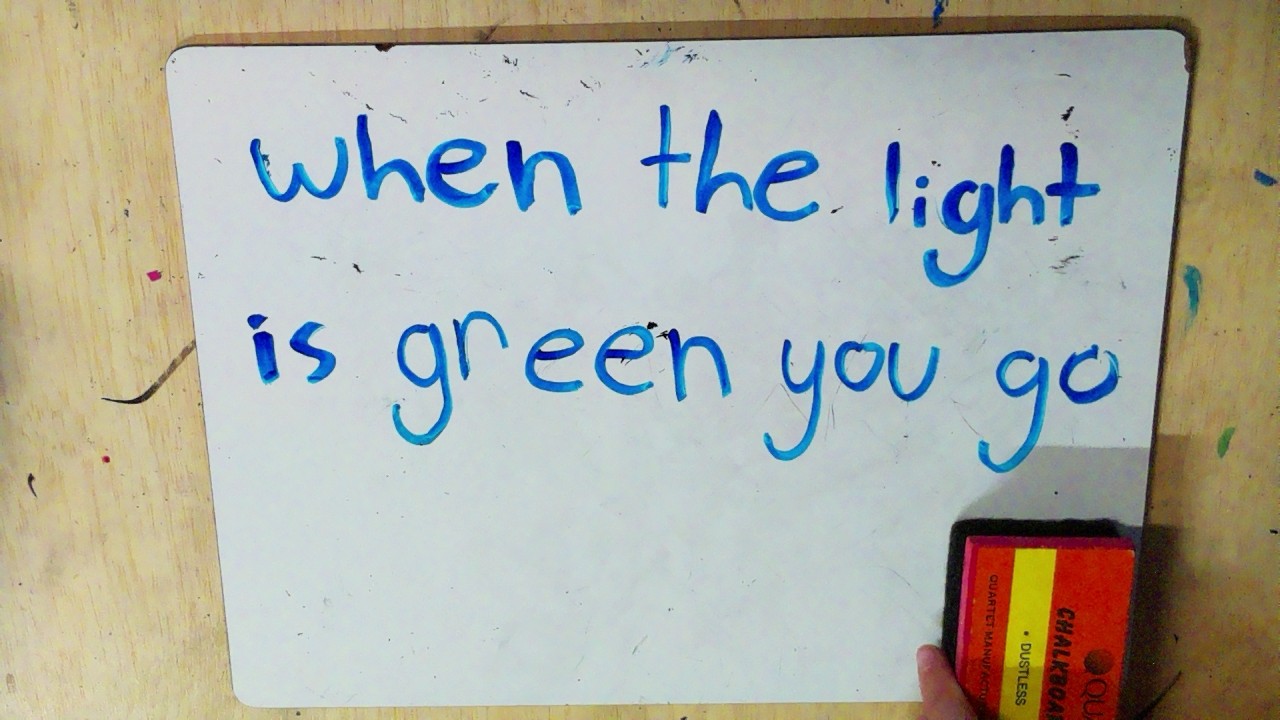 when the light
is green you go
QUARTET MANUFACT
• DUSTLESS
CHALKBOA
QU